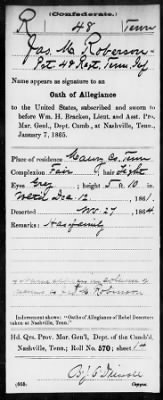 (Confederate.)
R 48 Tenn
Jas. M. Roberson
Pvt 48 Regt. Tenn. Inf
Name appears as signature to an
Oath of Allegiance
to the United States, subscribed and sworn to
before Wm. H. Bracken, Lieut. and Asst. Pro.
Mar. Genl., Dept. Cumb., at Nashville, Tenn.,
January 7, 1865.
Place of residence Maury Co. Tenn
Complexion Fair, Light
Eyes Grey; height 5 ft. 10 in.
Dec. 12, 1861
Deserted Nov 27, 1864
Remarks: Has family
column of
Robinson
Indorsement shows: "Oaths of Allegiance of Rebel Deserters
taken at Nashville, Tenn."
Hd. Qrs. Prov. Mar. Gen'l, Dept. of the Cumb.
Nashville, Tenn.; Roll No. 570; sheet 1
(658)